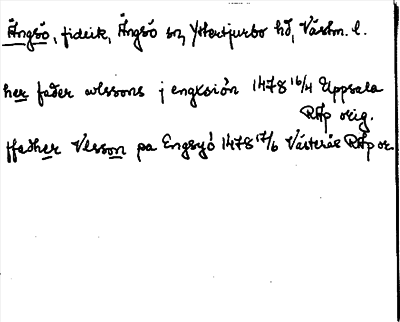 Ängsö, fideik, Ängsö sn, Yttertjurbo hd, Västm. l.
her fader wlssons j engxsiön 1478 16/4 Uppsala
RAp orig.
ffadher Vlsson pa Engsyö 1478 17/6 Västerås RAp or.